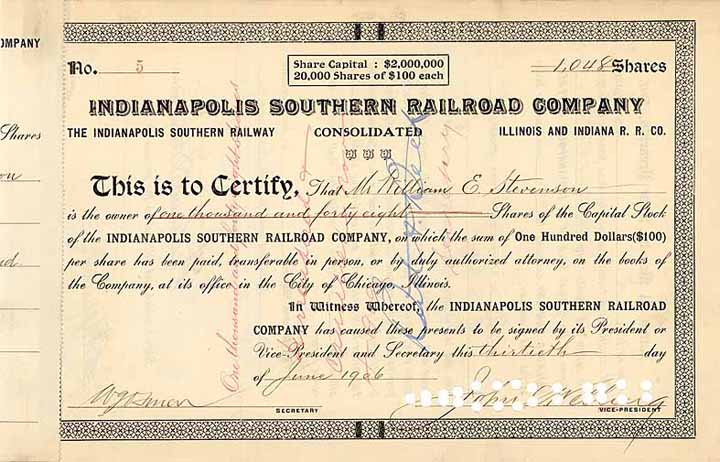 OMPANY
Shares
No. 5
Share Capital : $2,000,000
20,000 Shares of $100 each
1,048 Shares
INDIANAPOLIS SOUTHERN RAILROAD COMPANY
THE INDIANAPOLIS SOUTHERN RAILWAY CONSOLIDATED ILLINOIS AND INDIANA R. R. CO.
This is to Certify, That Mr William E. Stevenson
is the owner of one thousand and forty eight Shares of the Capital Stock
of the INDIANAPOLIS SOUTHERN RAILROAD COMPANY, on which the sum of One Hundred Dollars ($100)
per share has been paid, transferable in person, or by duly authorized attorney, on the books of
the Company, at its office in the City of Chicago, Illinois.
In Witness Whereof, the INDIANAPOLIS SOUTHERN RAILROAD
COMPANY has caused these presents to be signed by its President or
Vice-President and Secretary this thirtieth day
of June 1906
SECRETARY
VICE-PRESIDENT